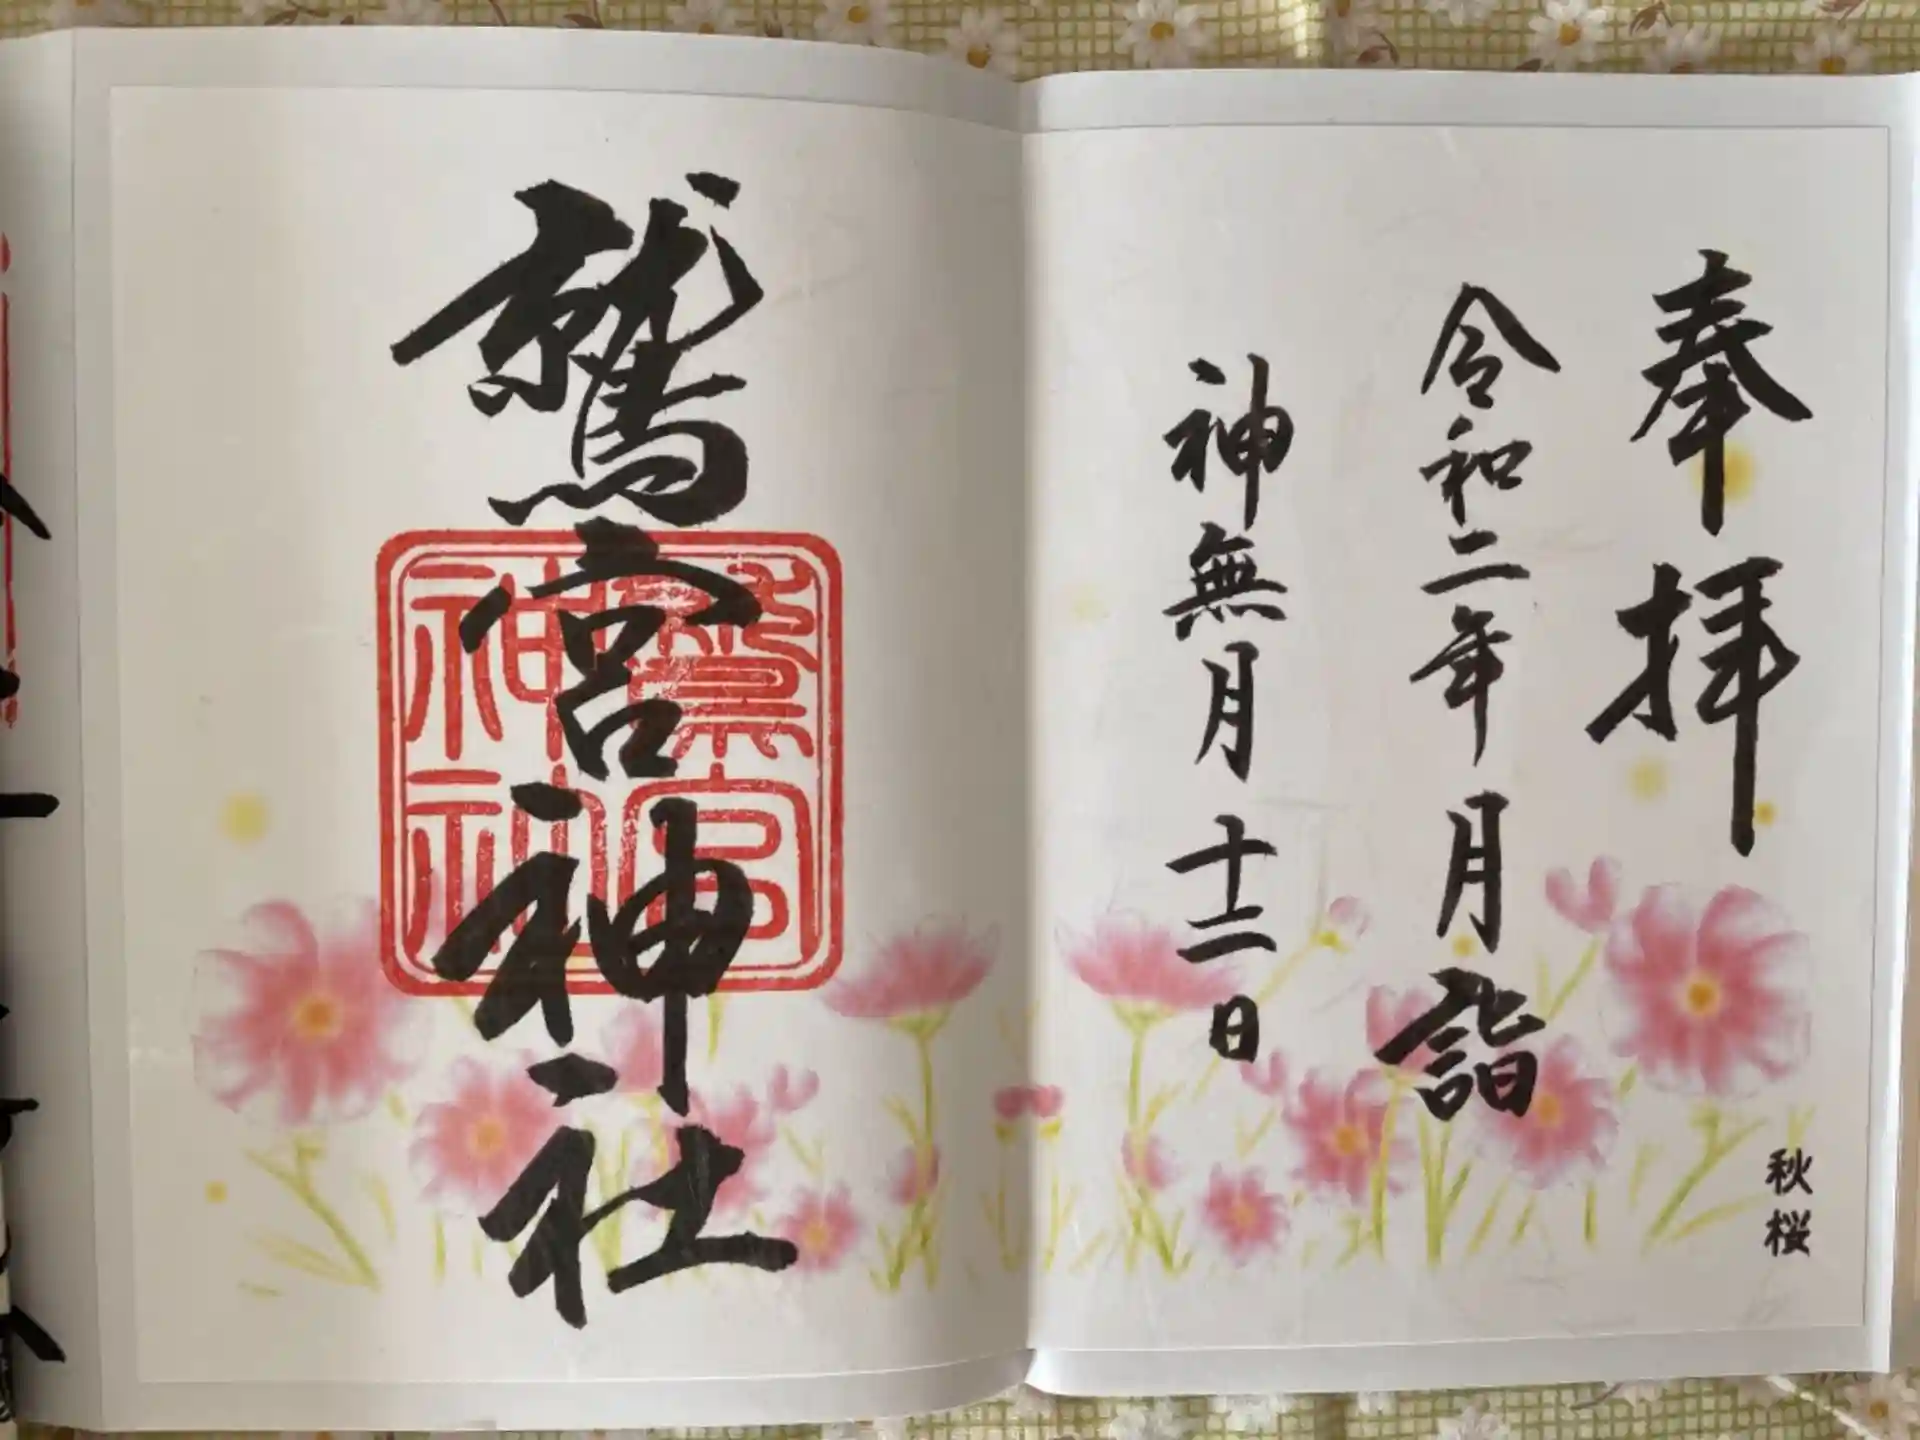 奉拝
令和二年月詣
神無月十二日
秋桜
鷲宮神社
鷲宮
神社